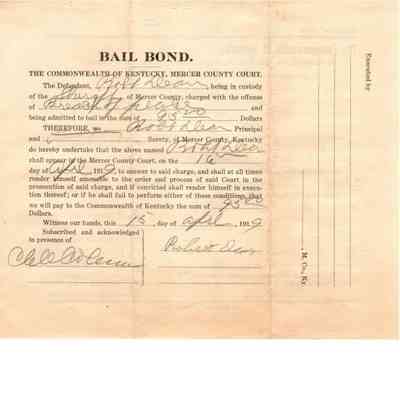 BAIL BOND.
THE COMMONWEALTH OF KENTUCKY, MERCER COUNTY COURT.
The Defendant, Robt Dean being in custody
of the Sheriff of Mercer County, charged with the offense
of Breach of peace and
being admitted to bail in the sum of Dollars
THEREFORE, we Robt Dean Principal
and Surety, of Mercer County, Kentucky,
do hereby undertake that the above named Robt Dean
shall appear in the Mercer County Court, on the 16
day of April 1919, to answer to said charge, and shall at all times
render himself amenable to the order and process of said Court in the
prosecution of said charge, and if convicted shall render himself in execu-
tion thereof; or if he shall fail to perform either of these conditions, that
we will pay to the Commonwealth of Kentucky the sum of
Dollars.
Witness our hands, this 15 day of April 1919
Subscribed and acknowledged
in presence of
Robert Dean
Executed by
, M. Co., Ky.